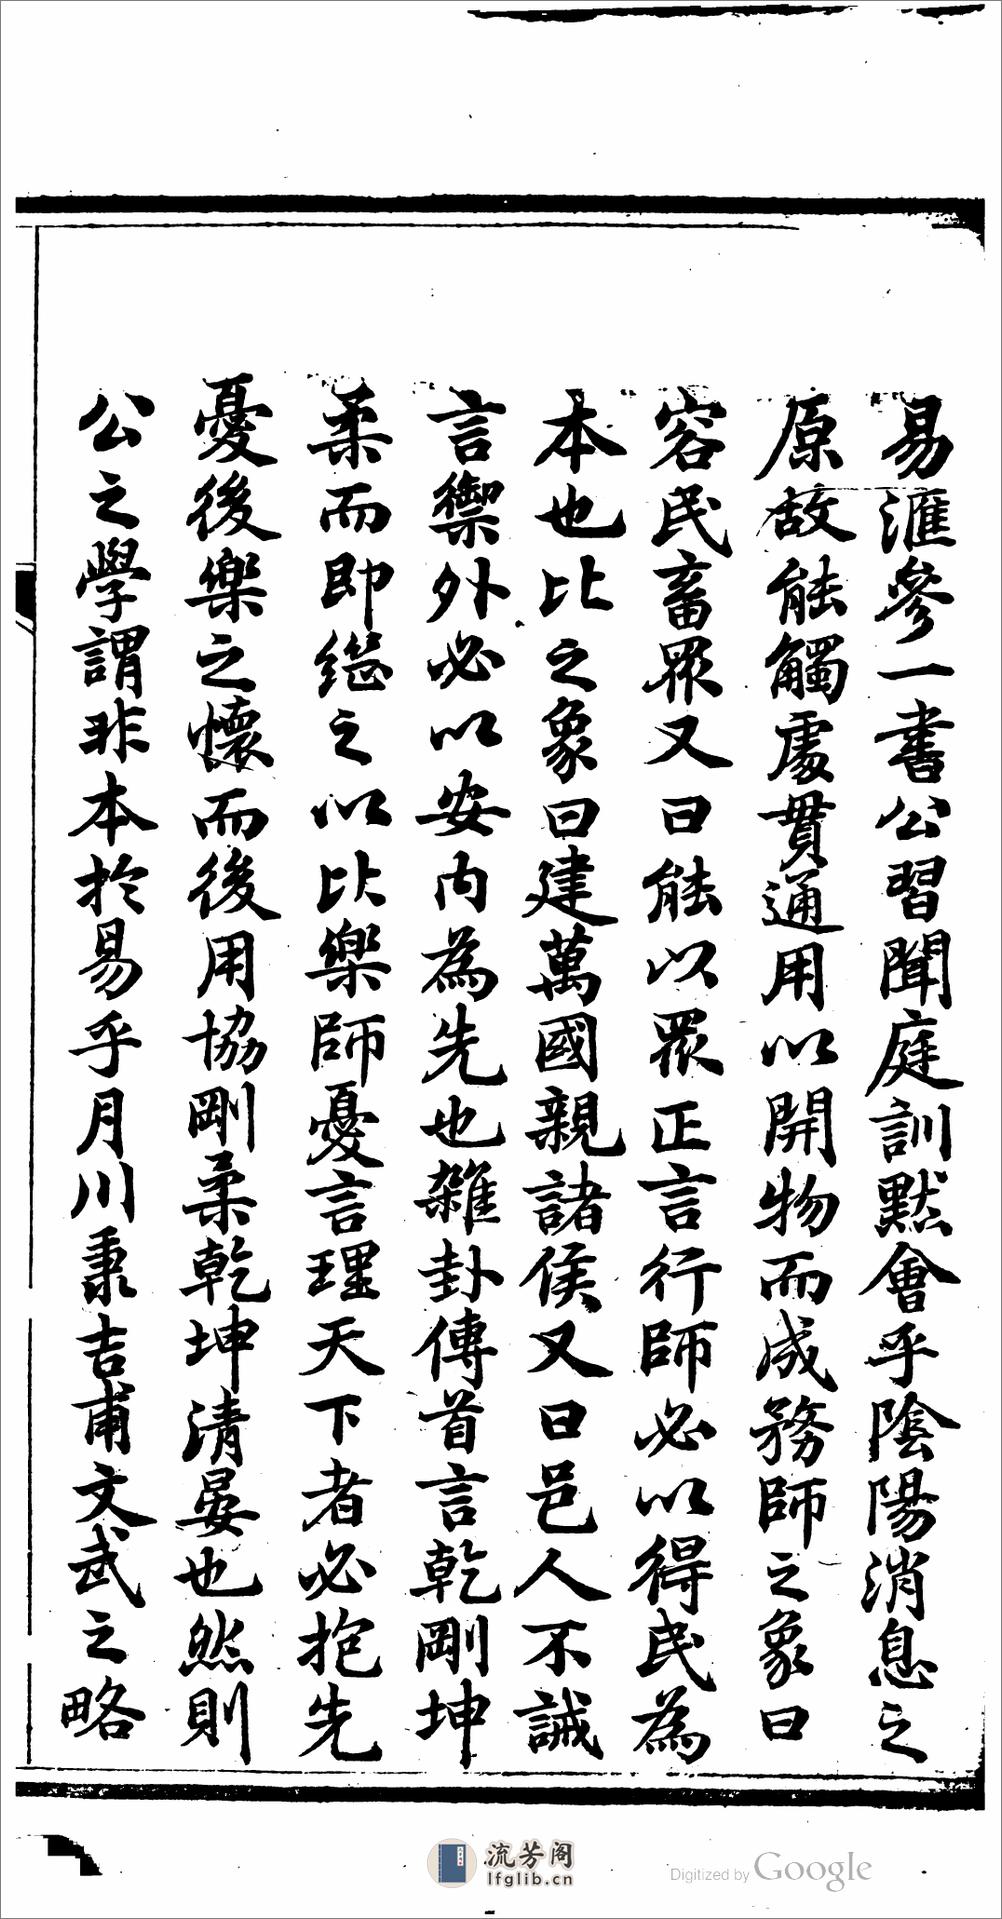 易滙參一書公習聞庭訓默會乎陰陽消息之
原故能觸處貫通用以開物而成務師之象曰
容民畜眾又曰能以眾正言行師必以得民為
本也比之象曰建萬國親諸侯又曰邑人不誡
言禦外必以安內為先也雜卦傳首言乾剛坤
柔而即繼之以比樂師憂言理天下者必抱先
憂後樂之懷而後用協剛柔乾坤清晏也然則
公之學謂非本於易乎月川秉吉甫文武之略
流芳阁
lfglib.cn
Digitized by Google